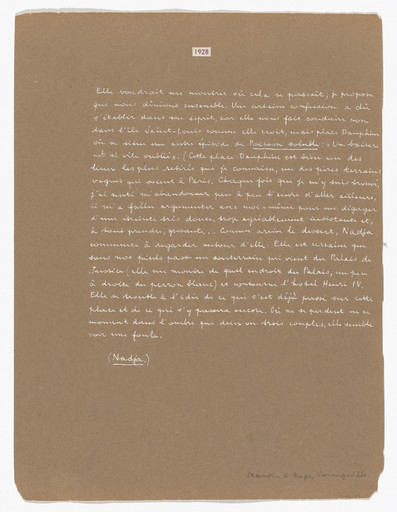 1928
Elle voudrait me montrer où cela se passait, je propose
que nous dînions ensemble. Une certaine confusion a dû
s'établir dans son esprit, car elle nous fait conduire non
dans l'île Saint-Louis comme elle croit, mais place Dauphine
où se situe un autre épisode de Poisson soluble : « Un baiser
est si vite oublié ». (Cette place Dauphine est bien un des
lieux les plus retirés que je connaisse, un des pires terrains
vagues qui soient à Paris. Chaque fois que je m'y suis trouvé,
j'ai senti m'abandonner peu à peu l'envie d'aller ailleurs,
il m'a fallu argumenter avec moi-même pour me dégager
d'une étreinte très douce, trop agréablement insistante et,
à tout prendre, brisante)... Comme arrive le dessert, Nadja
commence à regarder autour d'elle. Elle est certaine que
sous nos pieds passe un souterrain qui vient du Palais de
Justice (elle me montre de quel endroit du Palais, un peu
à droite du perron blanc) et contourne l'hôtel Henri IV.
Elle se trouble à l'idée de ce qui s'est déjà passé sur cette
place et de ce qui s'y passera encore. Où ne se perdent en ce
moment dans l'ombre que deux ou trois couples, elle semble
voir une foule.
(Nadja)